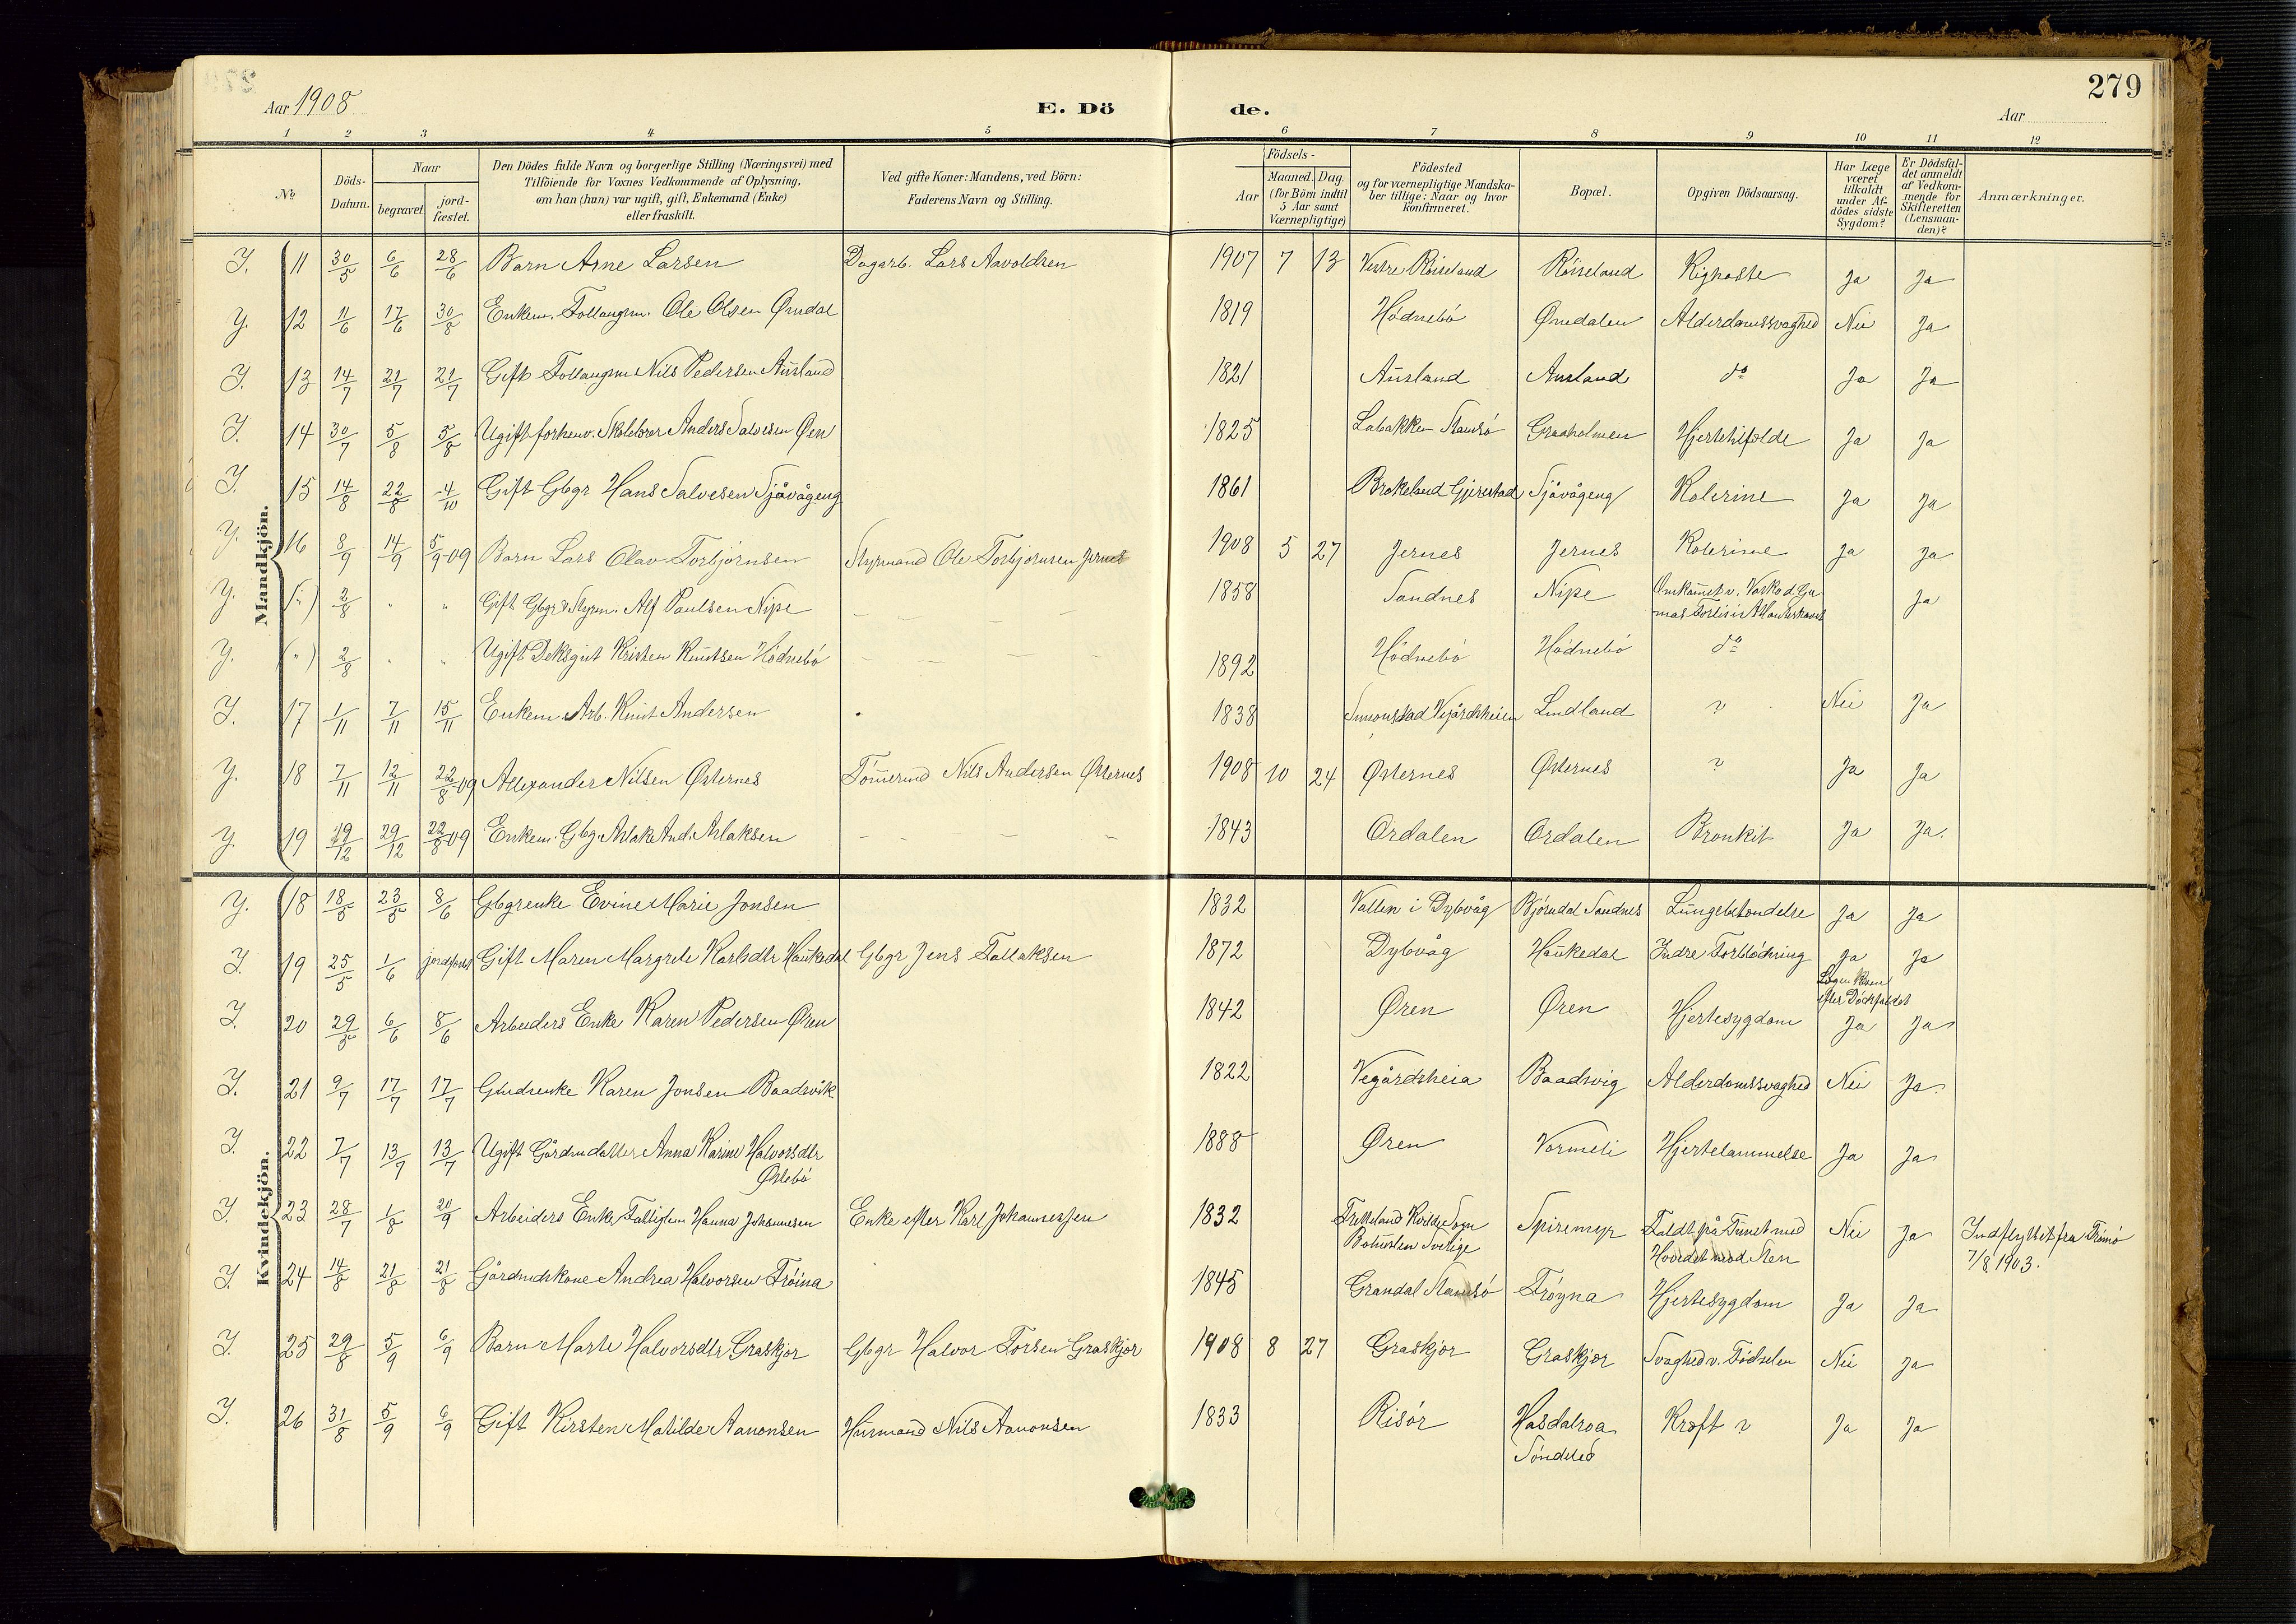 279
Aar 1908
E. Dö de.
Aar
1 2 3 4 5 6 7 8 9 10 11 12
No
Döds-Datum.
Naar
begravet. jord-fæstet.
Den Dödes fulde Navn og borgerlige Stilling (Næringsvei) med
Tilföiende for Voxnes Vedkommende af Oplysning,
om han (hun) var ugift, gift, Enkemand (Enke)
eller fraskilt.
Ved gifte Koner: Mandens, ved Börn:
Faderens Navn og Stilling.
Födsels-
Aar Maaned. Dag.
(for Börn indtil
5 Aar samt
Værnepligtige)
Födested
og for værnepligtige Mandska-
ber tillige: Naar og hvor
konfirmeret.
Bopæl.
Opgiven Dödsaarsag.
Har Læge
været
tilkaldt
under Af-
dödes sidste
Sygdom?
Er Dödsfal-
det anmeldt
af Vedkom-
mende for
Skifteretten
(Lensman-
den)?
Anmærkninger.
Mandkjön.
J. 11 30/5 6/6 28/6 Barn Arne Larsen Dagarb. Lars Aavoldsen 1907 7 13 Vestre Röiseland Röiseland Kighoste Ja Ja
J. 12 11/6 17/6 30/8 Enkem. Follaugsm. Ole Olsen Ørndal 1819 Hödnebö Ørndalen Alderdomssvaghed Nei Ja
J. 13 14/7 21/7 21/7 Gift Follaugsm Nils Pedersen Ausland 1821 Ausland Ausland do Ja Ja
J. 14 30/7 5/8 5/8 Ugift forhenv. Skolelærer Anders Salvesen Øen 1825 Labakken Graaholmen Hjertetilfælde Ja Ja
J. 15 14/8 22/8 4/10 Gift Gbgr Hans Salvesen Sjåvågeng 1861 Brokeland Gjerestad Sjåvågeng Kolerine Ja Ja
J. 16 8/9 14/9 5/9-09 Barn Lars Olav Torbjörnsen Styrmand Ole Torbjörnsen Jernes 1908 5 27 Jernes Jernes Kolerine Ja Ja
J. (") 2/8 " " Gift Gbgr & Styrm. Alf Paulsen Nipe 1858 Sandnes Nipe Omkomet v. Vasko d. Ga
mas Forlis i Atlanterhavet Ja
J. (") 2/8 " " Ugift Deksgut Kristen Knutsen Hödnebö 1892 Hödnebö Hödnebö do
J. 17 1/11 7/11 15/11 Enkem Arb. Knut Andersen 1838 Simonstad Vegårdsheien Lindland ? Nei Ja
J. 18 7/11 12/11 22/8 09 Allexander Nilsen Østernes Tömmermd Nils Andersen Østernes 1908 10 24 Østernes Østernes ? Ja Ja
J. 19 19/12 29/12 22/8 09 Enkem. Gbg. Aslak And. Aslaksen 1843 Ordalen Ordalen Bronkit Ja Ja.
Kvindekjön.
J. 18 18/5 23/5 8/6 Gbgrenke Evine Marie Jonsen 1832 Vallen i Dybvåg Björndal Sandnes Lungebetændelse Ja Ja
J. 19 25/5 1/6 jordfæstet Gift Maren Margrete Karlsdtr Haukedal Gbgr Jens Tallaksen 1872 Dybvåg Haukedal Indre Forblödning Ja Ja
Lægen kom
efter Dödsfaldet
J. 20 29/5 6/6 8/6 Arbeiders Enke Karen Pedersen Øren 1842 Øren Øren Hjertesygdom Ja Ja
J. 21 9/7 17/7 17/7 Gårdmdenke Karen Jonsen Baadsvik 1822 Vegårdsheia Baadsvig Alderdomssvaghed Nei Ja.
J. 22 7/7 13/7 13/7 Ugift Gårdmdatter Anna Karine Halvorsdtr
Østebö 1888 Øren Vormeli Hjertelammelse Ja Ja
J. 23 28/7 1/8 20/9 Arbeiders Enke Fattiglem Hanna Johannesen Enke efter Karl Johannessen 1832 Sogn
Bohuslen Sverige Spiremyr Faldt på Tunet med
Hovedet mod Sten Nei Ja Indflyttet fra Tromö
7/8 1903.
J. 24 14/8 21/8 21/8 Gårdmdskone Andrea Halvorsen Tröina 1845 Grandal Tröyna Hjertesygdom Ja Ja
J. 25 29/8 5/9 6/9 Barn Marte Halvorsdtr Graskjær Gbgr Halvor Torsen Graskjær 1908 8 27 Graskjær Graskjær Svaghed v. Födselen Nei Ja
J. 26 31/8 5/9 6/9 Gift Kirsten Matilde Aanonsen Husmand Nils Aanonsen 1833 Risör Hasdalroa
Söndeled Kræft ? Ja Ja